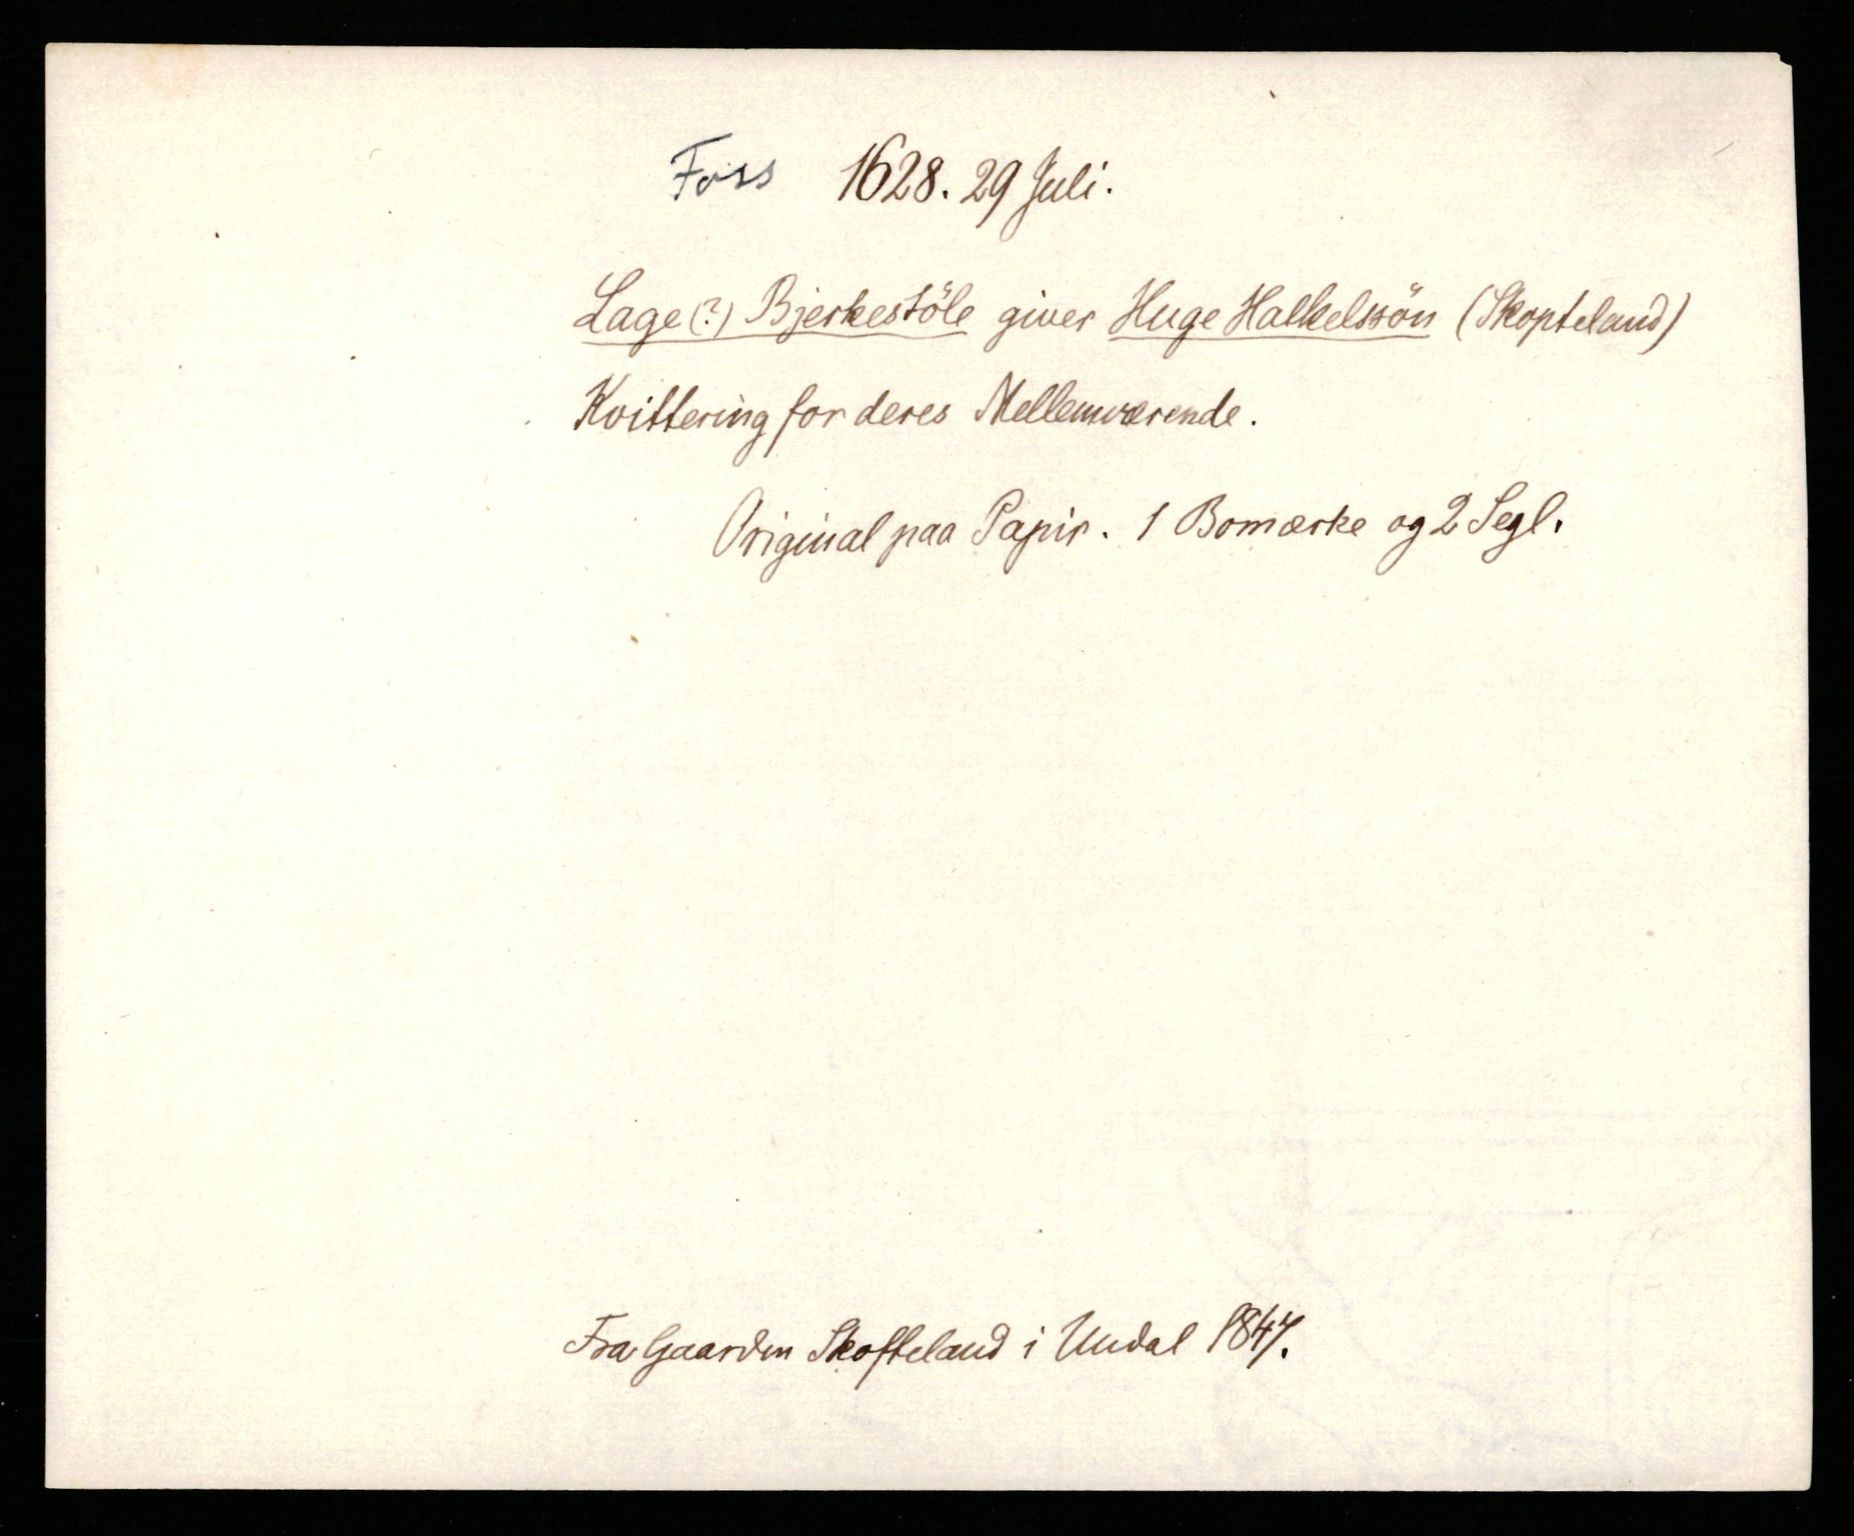 Foss 1628. 29 Juli.
Lage (?) Bjerkestöle giver Huge Halkelssön (Skopteland)
Kvittering for deres Mellemværende.
Original paa Papir. 1 Bomærke og 2 Segl.
Fra Gaarden Skofteland i Undal 1847.